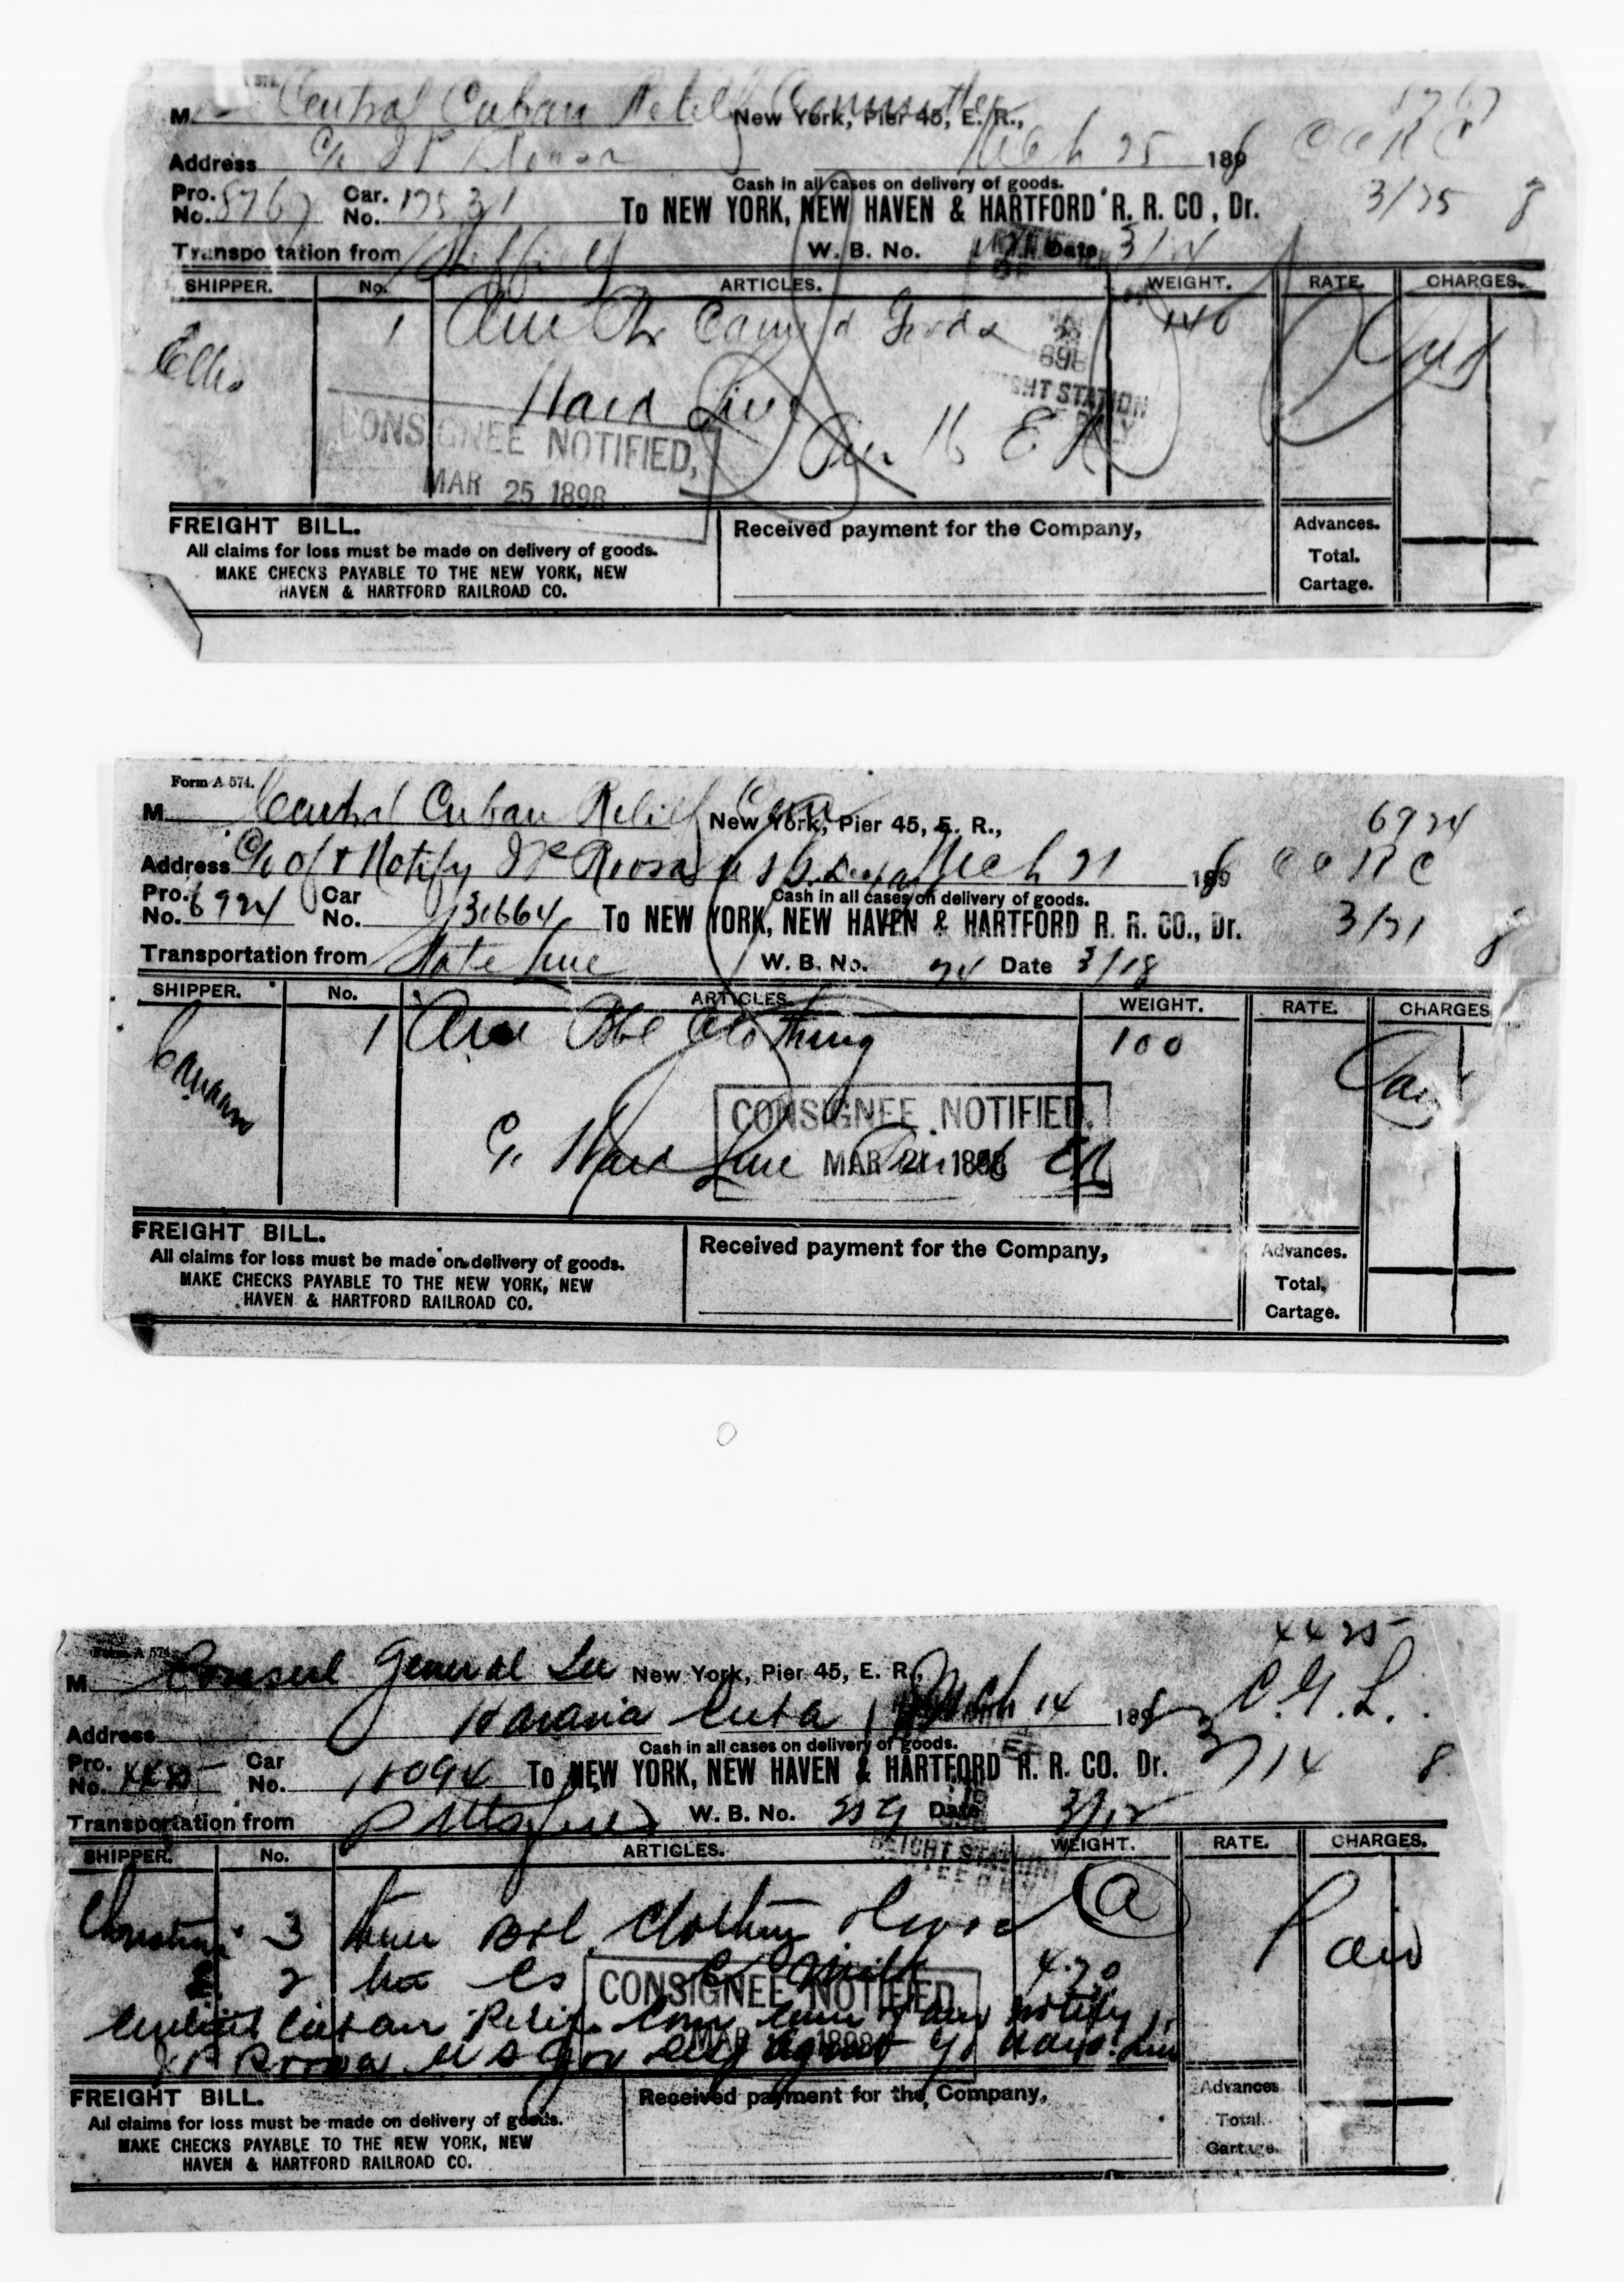 M Central Cuban Relief Committee New York, Pier 45, E. R., 8767
Address C/o March 25 1898 C C R C
Cash in all cases on delivery of goods.
Pro. No. 8767 Car. No. 17531 To NEW YORK, NEW HAVEN & HARTFORD R. R. CO., Dr. 3/25 8
Transpo tation from Sheffield W. B. No. Date 3/24
SHIPPER. No. ARTICLES. WEIGHT. RATE. CHARGES.
Ellis 1 Canned Goods 140 Paid
Ward Line
Pier 16 E R
CONSIGNEE NOTIFIED,
MAR 25 1898
FREIGHT BILL.
All claims for loss must be made on delivery of goods.
MAKE CHECKS PAYABLE TO THE NEW YORK, NEW
HAVEN & HARTFORD RAILROAD CO.
Received payment for the Company,
Advances.
Total.
Cartage.
Form A 574.
M Central Cuban Relief Com New York, Pier 45, E. R., 6924
Address C/o of & Notify March 21 1898 C C R C
Cash in all cases on delivery of goods.
Pro. No. 6924 Car No. 31664 To NEW YORK, NEW HAVEN & HARTFORD R. R. CO., Dr. 3/21 8
Transportation from State Line W. B. No. Date 3/18
SHIPPER. No. ARTICLES. WEIGHT. RATE. CHARGES
Canaan 1 Bbl Clothing 100 Paid
CONSIGNEE NOTIFIED.
C/o Ward Line Pier 16 E R
MAR 21 1898
FREIGHT BILL.
All claims for loss must be made on delivery of goods.
MAKE CHECKS PAYABLE TO THE NEW YORK, NEW
HAVEN & HARTFORD RAILROAD CO.
Received payment for the Company,
Advances.
Total,
Cartage.
Form A 574.
4425
M Consul General Lee New York, Pier 45, E. R., C. G. L.
Address Havana Cuba March 14 1898
Cash in all cases on delivery of goods.
Pro. No. 4425 Car No. 18094 To NEW YORK, NEW HAVEN & HARTFORD R. R. CO. Dr. 3/14 8
Transportation from Pittsfield W. B. No. Date 3/12
SHIPPER. No. ARTICLES. WEIGHT. RATE. CHARGES.
Christian 3 Bbl Clothing Paid
2 Cs Milk 420
CONSIGNEE NOTIFIED
Central Cuban Relief Com notify
U S Gov Desp Agent
FREIGHT BILL.
All claims for loss must be made on delivery of goods.
MAKE CHECKS PAYABLE TO THE NEW YORK, NEW
HAVEN & HARTFORD RAILROAD CO.
Received payment for the Company,
Advances
Total.
Cartage.